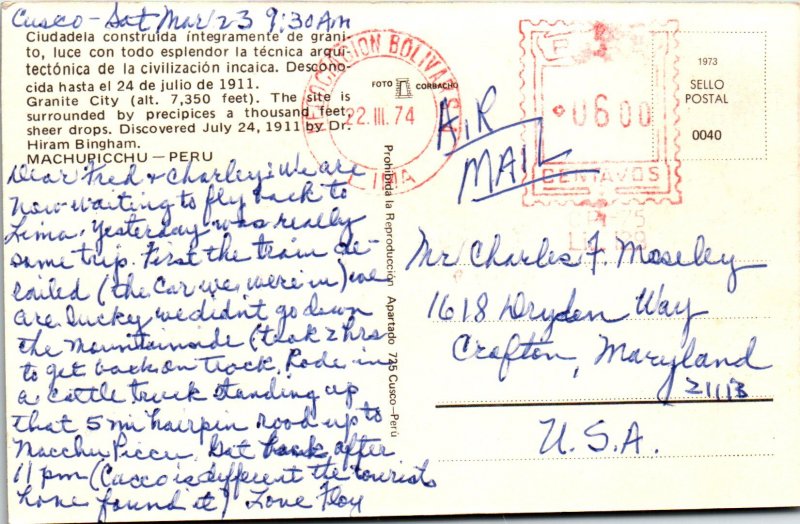 Cusco - Sat Mar 23 9:30 AM
Ciudadela construída íntegramente de grani-
to, luce con todo esplendor la técnica arqui-
tectónica de la civilización incaica. Descono-
cida hasta el 24 de julio de 1911.
Granite City (alt. 7,350 feet). The site is
surrounded by precipices a thousand feet
sheer drops. Discovered July 24, 1911 by Dr.
Hiram Bingham.
MACHUPICCHU – PERU
Dear Fred & Charley: We are
now waiting to fly back to
Lima. Yesterday was really
some trip. First the train de-
railed (the car we were in) we
are lucky we didn't go down
the mountainside (took 2 hrs
to get back on track. Rode in
a cattle truck standing up
that 5 mi hairpin road up to
Macchu Piccu. Got back after
11 pm (Cuzco is different the tourists
have found it) Love Floy
FOTO CORBACHO
Prohibida la Reproducción Apartado 725 Cusco-Perú
22.III.74
LIMA
AIR
MAIL
0600
CENTAVOS
1973
SELLO
POSTAL
0040
Mr Charles F. Moseley
1618 Dryden Way
Crofton, Maryland
21113
U.S.A.